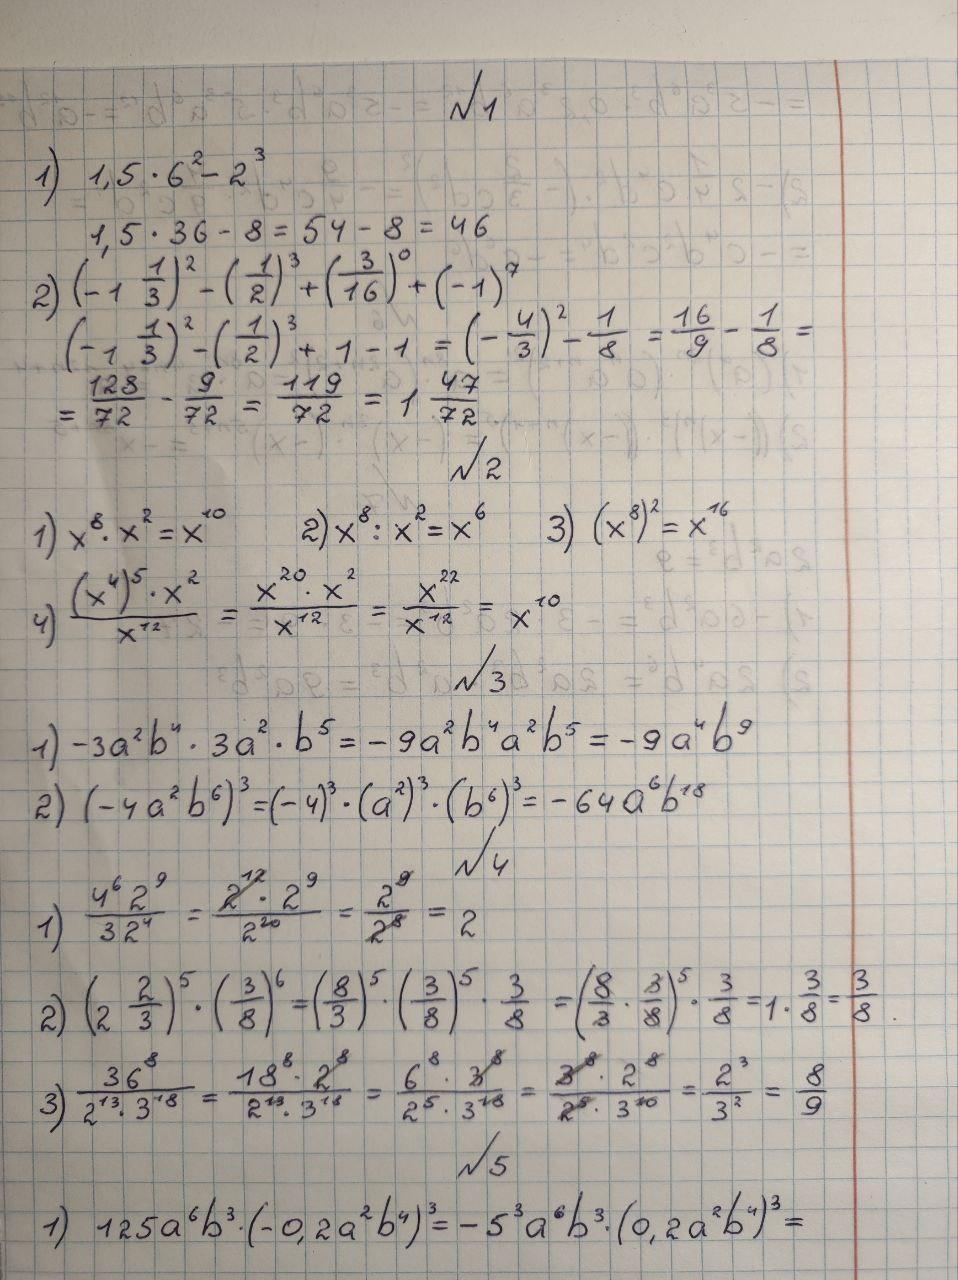 №1
1) 1,5 · 6² - 2³
1,5 · 36 - 8 = 54 - 8 = 46
2) (-1 1/3)² - (1/2)³ + (3/16)⁰ + (-1)⁷
(-1 1/3)² - (1/2)³ + 1 - 1 = (-4/3)² - 1/8 = 16/9 - 1/8 =
= 128/72 - 9/72 = 119/72 = 1 47/72
№2
1) x⁸ · x² = x¹⁰ 2) x⁸ : x² = x⁶ 3) (x⁸)² = x¹⁶
4) (x⁴)⁵ · x² / x¹² = x²⁰ · x² / x¹² = x²² / x¹² = x¹⁰
№3
1) -3a²b⁴ · 3a² · b⁵ = -9a²b⁴a²b⁵ = -9a⁴b⁹
2) (-4a²b⁶)³ = (-4)³ · (a²)³ · (b⁶)³ = -64a⁶b¹⁸
№4
1) 4⁶ 2⁹ / 32⁴ = 2¹² · 2⁹ / 2²⁰ = 2⁹ / 2⁸ = 2
2) (2 2/3)⁵ · (3/8)⁶ = (8/3)⁵ · (3/8)⁵ · 3/8 = (8/3 · 3/8)⁵ · 3/8 = 1 · 3/8 = 3/8
3) 36⁸ / 2¹³ · 3¹⁸ = 18⁸ · 2⁸ / 2¹³ · 3¹⁸ = 6⁸ · 3⁸ / 2⁵ · 3¹⁸ = 3⁸ · 2⁸ / 2⁵ · 3¹⁰ = 2³ / 3² = 8/9
№5
1) 125a⁶b³ · (-0,2a²b⁴)³ = -5³a⁶b³ · (0,2a²b⁴)³ =